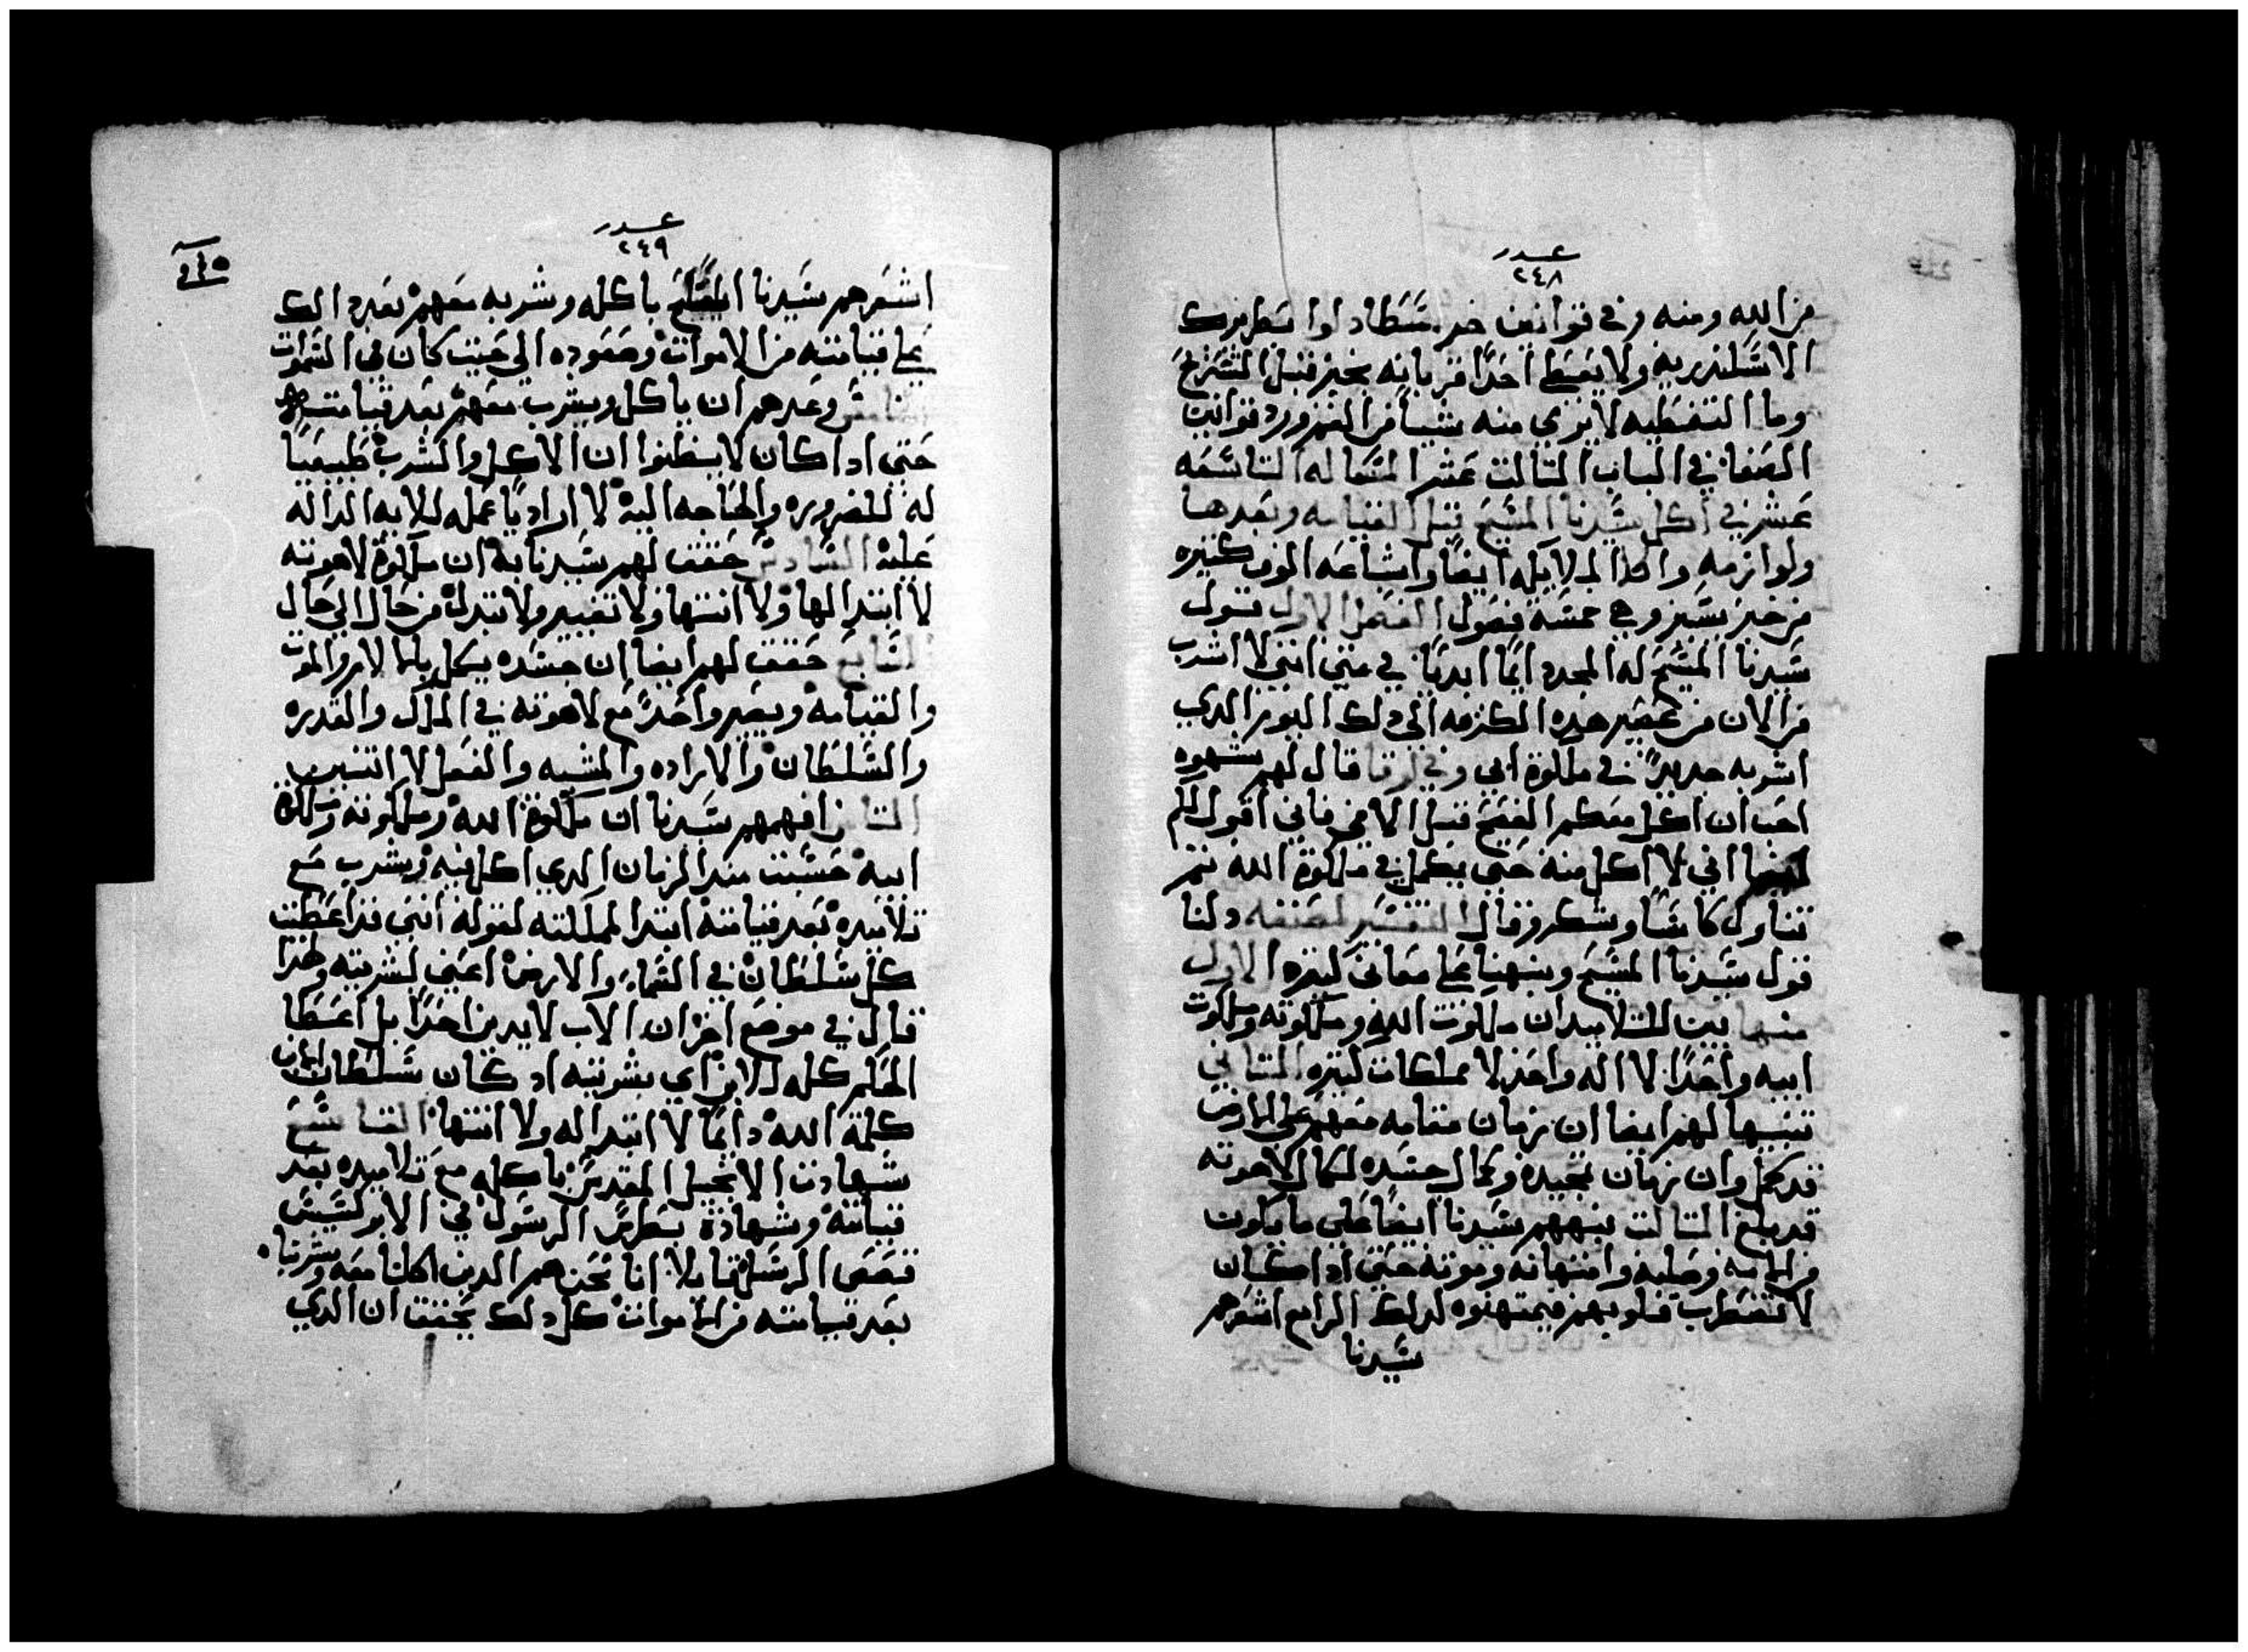 عدد
٢٤٨
من الله ومنه وفي قوانين خرسطادلوا بطريرك
الاسكندريه ولا يعطي احدًا قربانه بخير قبل الشروع
وما التغطيه لا يري منه شيا من الضرورد قوانين
الصفا في الباب التالت عشر المقاله التاسعه
عشر في اكل سيدنا المسيح قبل القيامه وبعدها
ولوازمه واكل الملايكه ايضًا واشاعه الموت كتيره
من خبر يسير وهي خمسه فصول الفصل الاول قول
سيدنا المسيح له المجد دايمًا ابديًا في متي انني لا اشرب
من الان من عصير هده الكرمه الي دلك اليوم الدي
اشربه جديدًا في ملكوة ابي وفي لوقا قال لهم بشهوه
احب ان اكل معكم الفصح قبل الامي فاني اقول لكم
ايضا اني لا اكل منه حتي يكمل في ملكوة الله تم
تناول كاسًا وشكر وقال التفسير لمصنفه دلنا
قول سيدنا المسيح وينهنا علي معاني كتيره الاول
منها بين للتلاميد ان ملكوت الله وملكوته وملكوت
ابيه واحدًا لا اله واحد لا مملكات كتيره التاني
تنبيها لهم ايضا ان زمان مقامه معهم علي الارض
قد كمل وان زمان تمجيده وكمال جسده لكمال لاهوته
قد بلغ التالت ينههم سيدنا ايضًا علي ما يكون
من الامه وصلبه وامتهانه وموته حتي ادا كان
لا تضطرب قلوبهم فيمتهنوه لدلك الرابع اشعرهم
سيدنا
عدد
٢٤٩
اشعرهم سيدنا المسيح باكله وشربه معهم بعد دالك
علي قيامته من الاموات وصعوده الي حيت كان في السموات
الخامس وعدهم ان ياكل ويشرب معهم بعد قيامته
حتي ادا كان لا يظنوا ان الاكل والشرب طبيعيًا
له للضروره والحاجه اليه لا اراديًا عمله للايه الداله
عليه السادس حقق لهم سيدنا به ان ملكوة لاهوته
لا ابتدا لها ولا انتها ولا تغيير ولا تبدل من حال الي حال
السابع حقق لهم ايضا ان جسده يكمل بالالام والموت
والقيامه ويصير واحدًا مع لاهوته في الملك والقدره
والسلطان والاراده والمشيه والفعل لا اتنين
التامن افهمهم سيدنا ان ملكوة الله وملكوته وملكوة
ابيه حسبت مند الزمان الدي اكل فيه وشرب مع
تلاميده بعد قيامته ابتدا لمملكته لقوله انني قد اعطيت
كل سلطان في السماء والارض اعني لبشريته ولهدا
قال في موضع اخر ان الاب لا يدين احدًا بل اعطا
الحكم كله للابن اي بشريته اد كان سلطان
كلمة الله دايمًا لا ابتدا له ولا انتها التاسع
شهادت الانجيل المقدس باكله مع تلاميده بعد
قيامته وشهادة بطرس الرسول في الابركسيس
قصص الرسل قايلا انا نحن هم الدين اكلنا معه وشربنا
بعد قيامته من الاموات كل دلك يحقق ان الدي